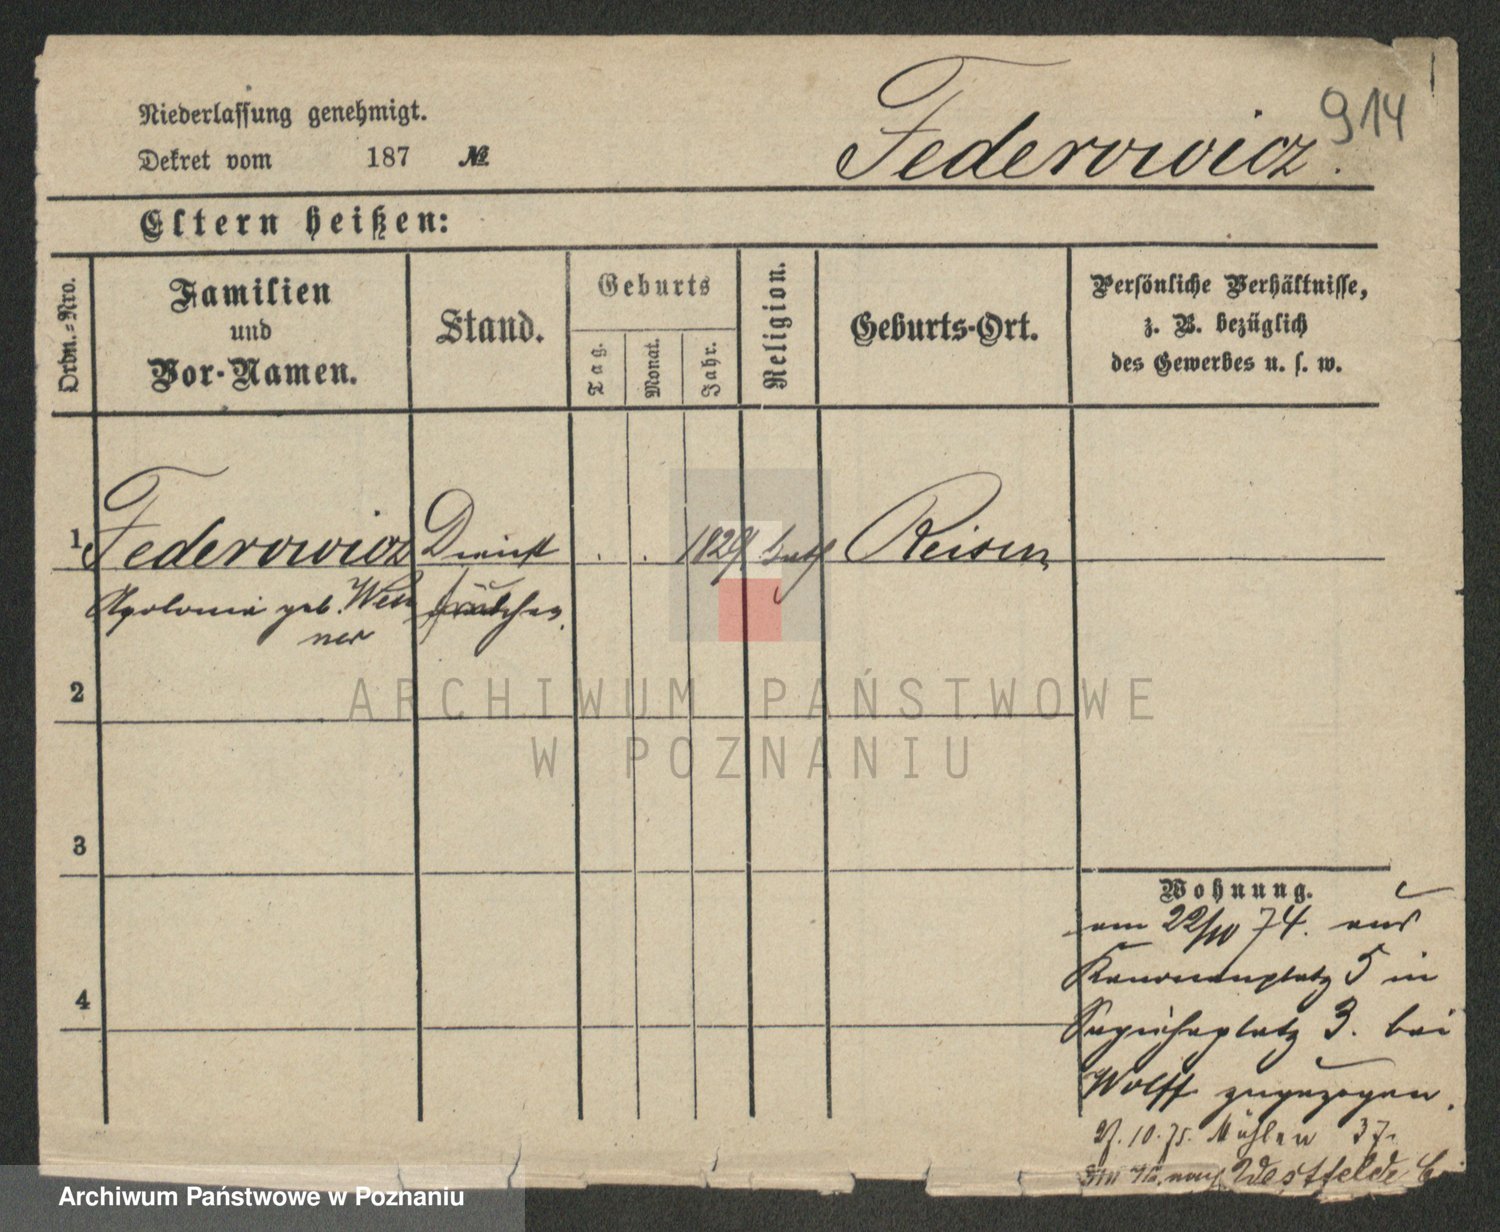 914
Niederlassung genehmigt.
Federowicz.
Dekret vom 187 №
Eltern heißen:
Ordn.-Nro.
Familien
und
Vor-Namen.
Stand.
Geburts
Tag.
Monat.
Jahr.
Religion.
Geburts-Ort.
Persönliche Verhältnisse,
z. B. bezüglich
des Gewerbes u. s. w.
1 Federowicz Dienst . . 1829 kath Reisen
Apolonia geb. Wen
ner
mädchen.
2
ARCHIWUM PAŃSTWOWE
W POZNANIU
3
Wohnung.
am 22/10 74. aus
Kanonenplatz 5 in
Sapiehaplatz 3. bei
Wolff zugezogen.
4
27.10.75. Mühlen 37.
nach Westfelde
Archiwum Państwowe w Poznaniu